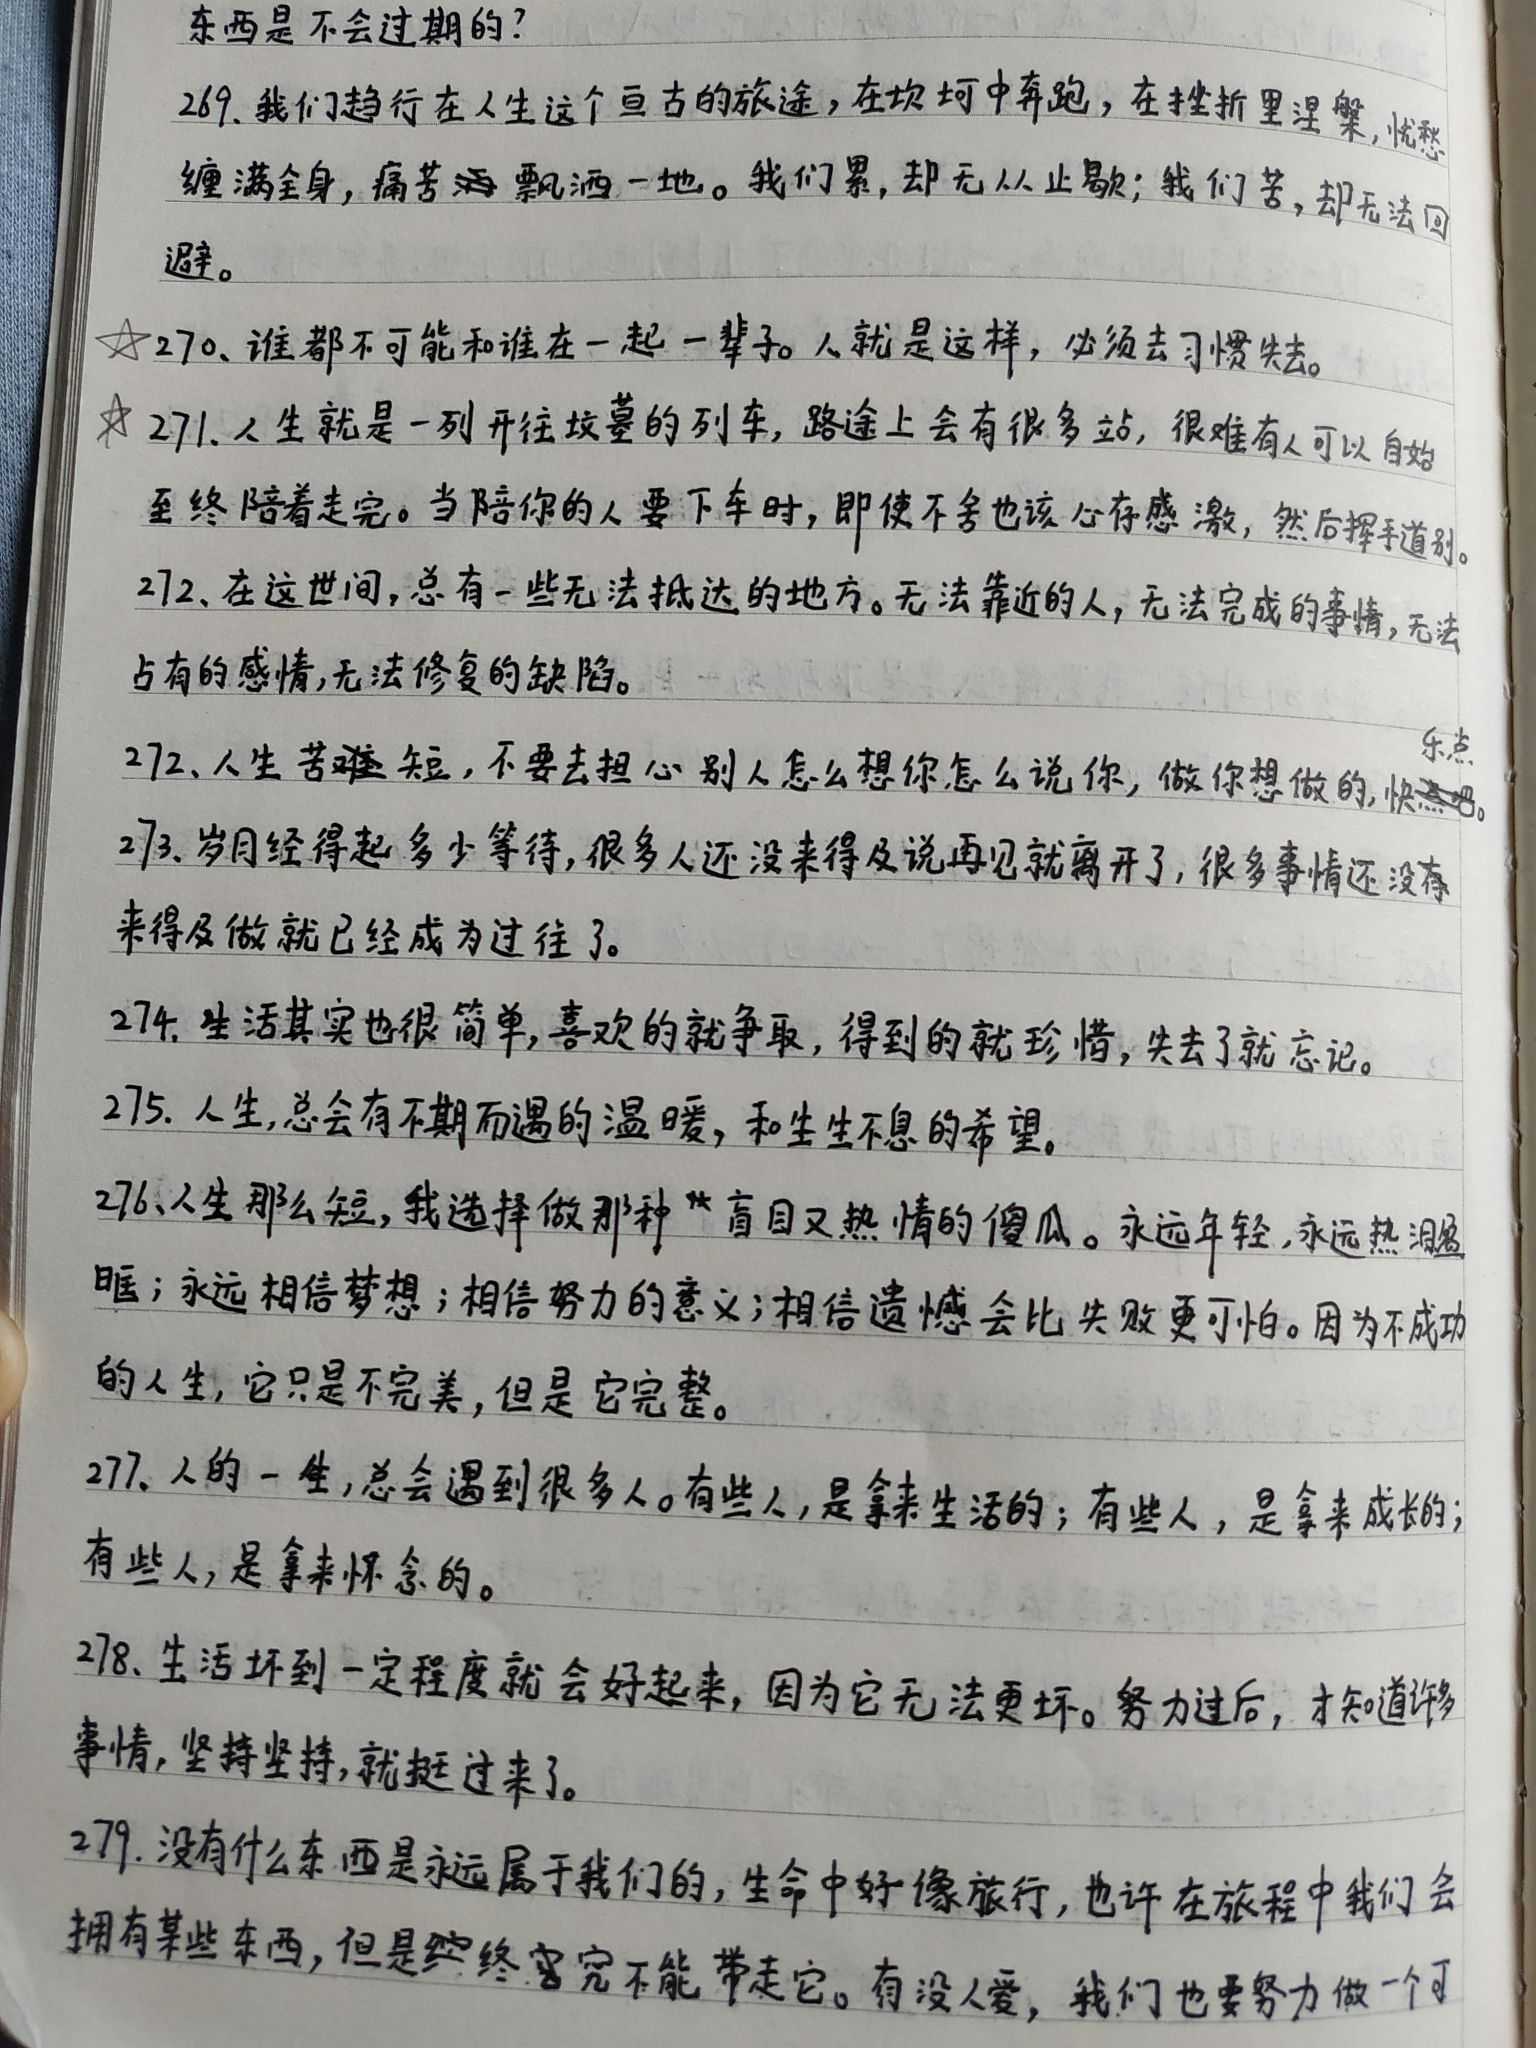 东西是不会过期的?
269、我们趋行在人生这个亘古的旅途,在坎坷中奔跑,在挫折里涅槃,忧愁
缠满全身,痛苦飘洒一地。我们累,却无从止歇;我们苦,却无法回
避。
☆270、谁都不可能和谁在一起一辈子。人就是这样,必须去习惯失去。
☆271、人生就是一列开往坟墓的列车,路途上会有很多站,很难有人可以自始
至终陪着走完。当陪你的人要下车时,即使不舍也该心存感激,然后挥手道别。
272、在这世间,总有一些无法抵达的地方。无法靠近的人,无法完成的事情,无法
占有的感情,无法修复的缺陷。
272、人生苦短,不要去担心别人怎么想你怎么说你,做你想做的,快乐点。
273、岁月经得起多少等待,很多人还没来得及说再见就离开了,很多事情还没有
来得及做就已经成为过往了。
274、生活其实也很简单,喜欢的就争取,得到的就珍惜,失去了就忘记。
275、人生,总会有不期而遇的温暖,和生生不息的希望。
276、人生那么短,我选择做那种盲目又热情的傻瓜。永远年轻,永远热泪盈
眶;永远相信梦想;相信努力的意义;相信遗憾会比失败更可怕。因为不成功
的人生,它只是不完美,但是它完整。
277、人的一生,总会遇到很多人。有些人,是拿来生活的;有些人,是拿来成长的;
有些人,是拿来怀念的。
278、生活坏到一定程度就会好起来,因为它无法更坏。努力过后,才知道许多
事情,坚持坚持,就挺过来了。
279、没有什么东西是永远属于我们的,生命中好像旅行,也许在旅程中我们会
拥有某些东西,但是终究不能带走它。有没人爱,我们也要努力做一个可